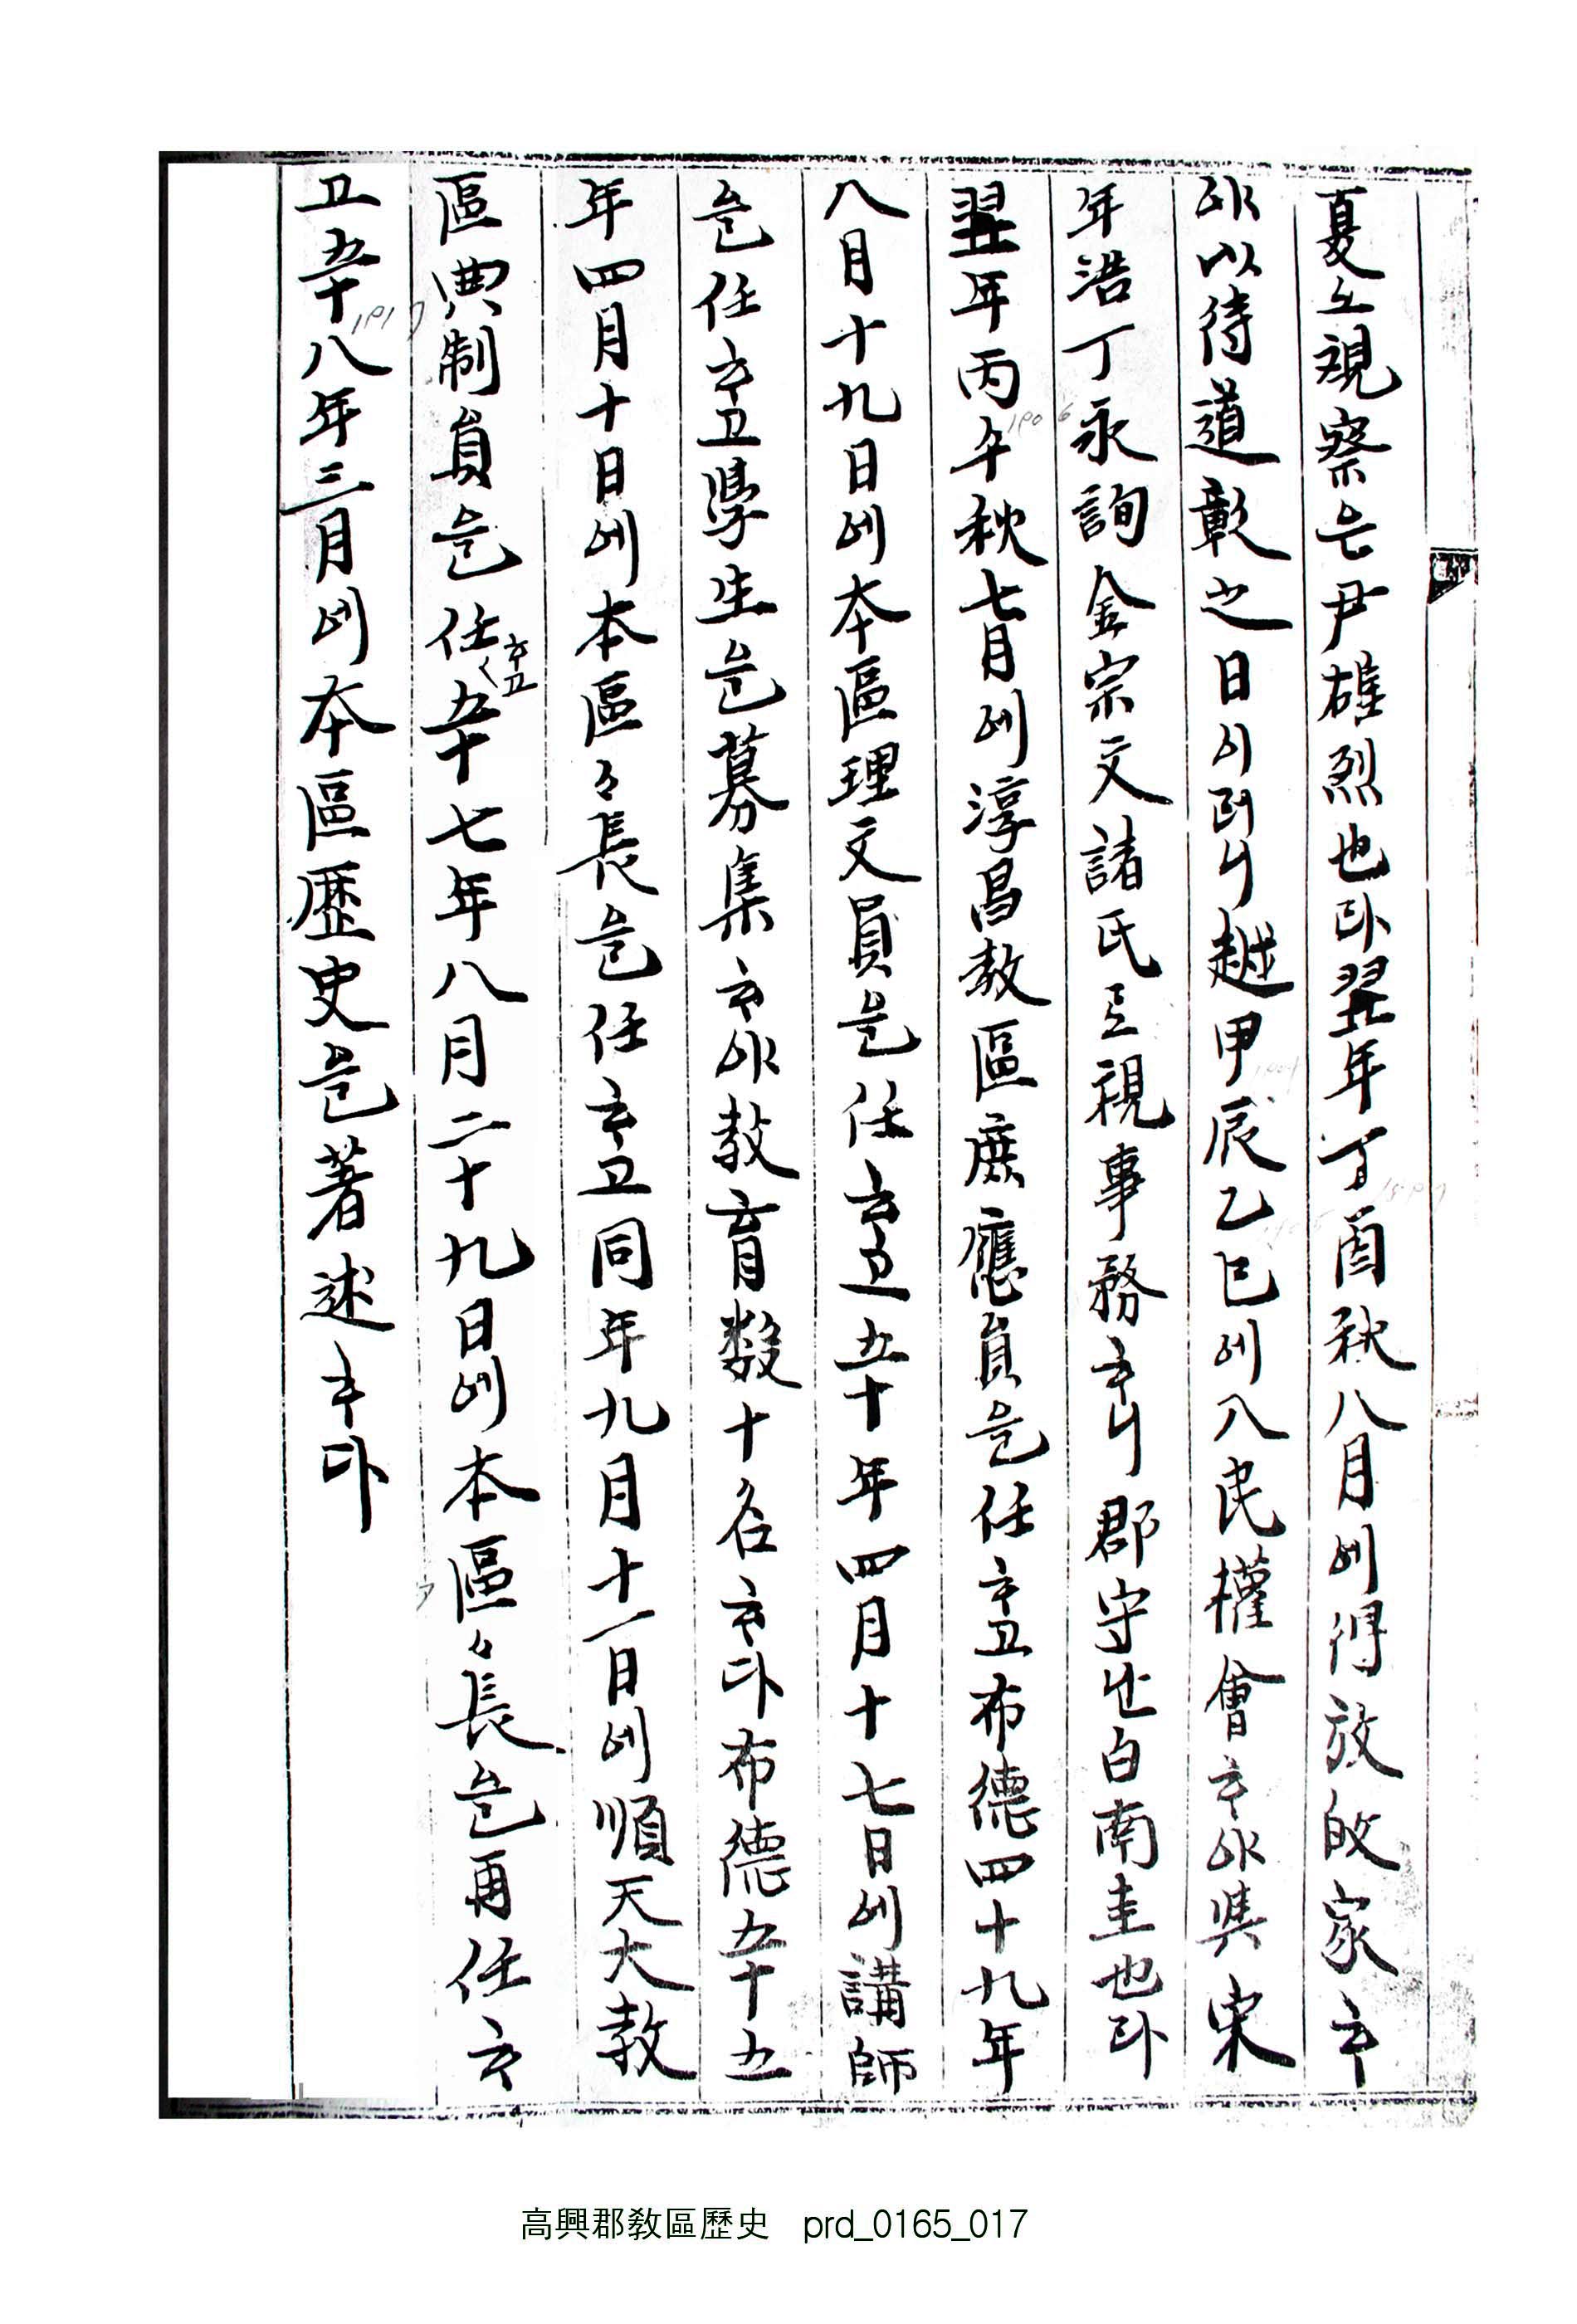 夏노視察은尹雄烈也라翌年丁酉秋八月에得放故家하
야以待道彰之日이러니越甲辰乙巳에入民權會하야與宋
年浩丁永詢金宗文諸氏로視事務하니郡守난白南圭也라
翌年丙午秋七月에淳昌敎區庶應員을任하고布德四十九年
八月十九日에本區理文員을任하고五十年四月十七日에講師
을任하고學生을募集하야敎育数十名하다布德五十五
年四月十日에本區々長을任하고同年九月十一日에順天大敎
區典制員을任하고五十七年八月二十九日에本區々長을再任하
고五十八年三月에本區歷史을著述하다
1906
1917
高興郡敎區歷史 prd_0165_017